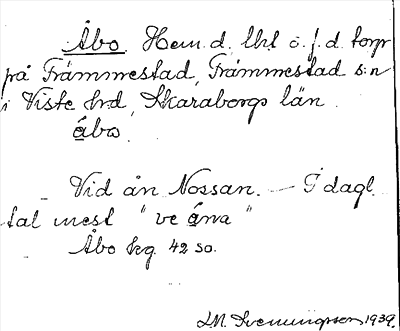 Åbo. Hem.d. lht o.f.d. torp
på Främmestad, Främmestad s:n
i Viste hrd, Skaraborgs län.
åbo.
Vid ån Nossan. — I dagl.
tal mest "ve åna"
Åbo hg. 42 so.
J.M. Svenungsson 1939.